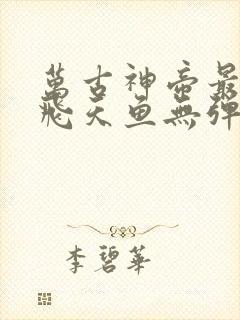 萬古神帝最
飛天魚無彈
李碧華